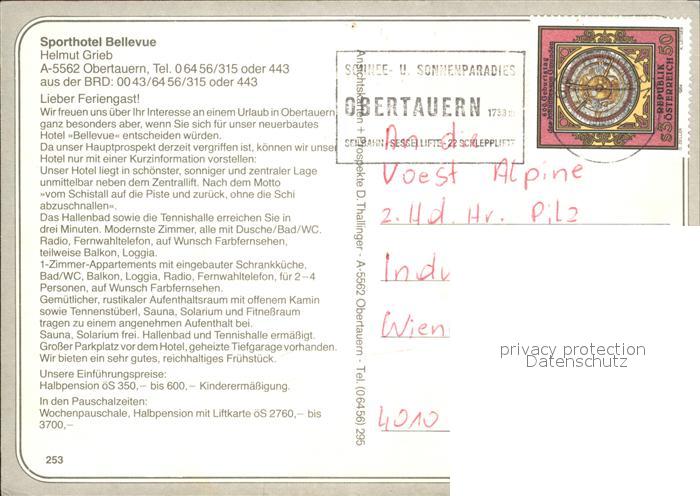 Sporthotel Bellevue
Helmut Grieb
A-5562 Obertauern, Tel. 06456/315 oder 443
aus der BRD: 0043/6456/315 oder 443
Lieber Feriengast!
Wir freuen uns über Ihr Interesse an einem Urlaub in Obertauern,
ganz besonders aber, wenn Sie sich für unser neuerbautes
Hotel »Bellevue« entscheiden würden.
Da unser Hauptprospekt derzeit vergriffen ist, können wir unser
Hotel nur mit einer Kurzinformation vorstellen:
Unser Hotel liegt in schönster, sonniger und zentraler Lage
unmittelbar neben dem Zentrallift. Nach dem Motto
»vom Schistall auf die Piste und zurück, ohne die Schi
abzuschnallen«.
Das Hallenbad sowie die Tennishalle erreichen Sie in
drei Minuten. Modernste Zimmer, alle mit Dusche/Bad/WC.
Radio, Fernwahltelefon, auf Wunsch Farbfernsehen,
teilweise Balkon, Loggia.
1-Zimmer-Appartements mit eingebauter Schrankküche,
Bad/WC, Balkon, Loggia, Radio, Fernwahltelefon, für 2–4
Personen, auf Wunsch Farbfernsehen.
Gemütlicher, rustikaler Aufenthaltsraum mit offenem Kamin
sowie Tennenstüberl, Sauna, Solarium und Fitneßraum
tragen zu einem angenehmen Aufenthalt bei.
Sauna, Solarium frei. Hallenbad und Tennishalle ermäßigt.
Großer Parkplatz vor dem Hotel, geheizte Tiefgarage vorhanden.
Wir bieten ein sehr gutes, reichhaltiges Frühstück.
Unsere Einführungspreise:
Halbpension öS 350,– bis 600,– Kinderermäßigung.
In den Pauschalzeiten:
Wochenpauschale, Halbpension mit Liftkarte öS 2760,– bis
3700,–
253
Ansichtskarten + Prospekte D. Thallinger - A-5562 Obertauern - Tel. (06456) 295
SCHNEE- U. SONNENPARADIES
OBERTAUERN 1733m
SEILBAHN SESSELLIFTE-22 SCHLEPPLIFTE
REPUBLIK
ÖSTERREICH
S 3
50
An die
Voest Alpine
z. Hd. Hr. Pilz
Indu
Wien
4010
privacy protection
Datenschutz